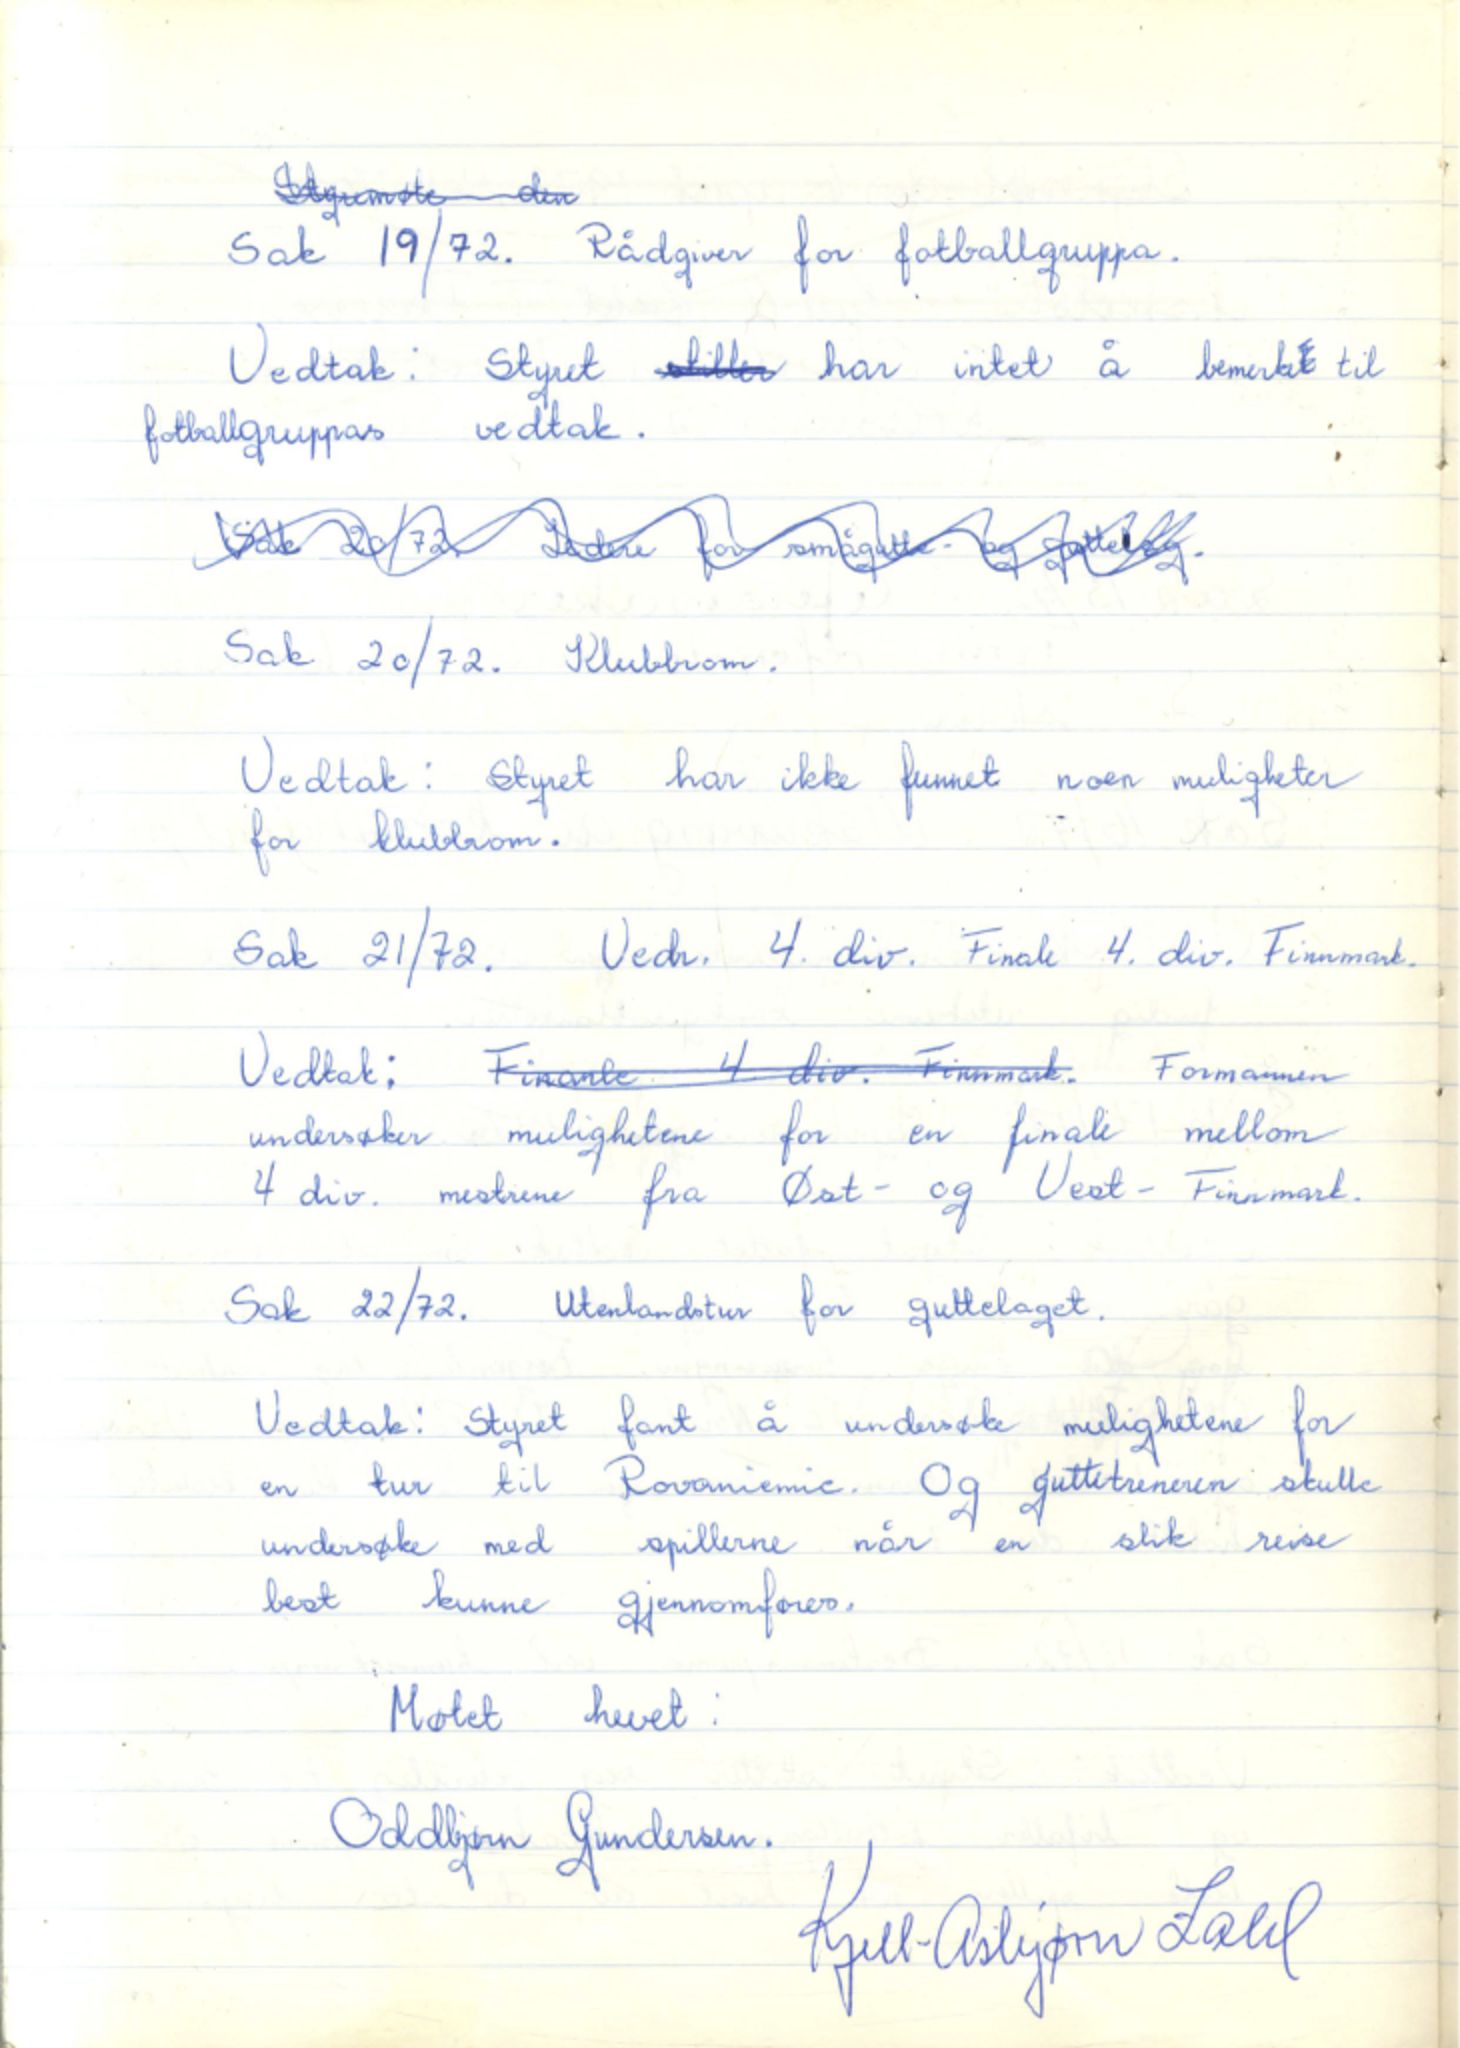 Styremøte den
Sak 19/72. Rådgiver for fotballgruppa.
Vedtak: Styret stiller har intet å bemerke til
fotballgruppas vedtak.
Sak 20/72. Ledere for smågutte- og guttelag.
Sak 20/72. Klubbrom.
Vedtak: Styret har ikke funnet noen muligheter
for klubbrom.
Sak 21/72. Vedr. 4. div. Finale 4. div. Finnmark.
Vedtak: Finanle 4 div. Finnmark. Formannen
undersøker mulighetene for en finale mellom
4 div. mestrene fra Øst- og Vest- Finnmark.
Sak 22/72. Utenlandstur for guttelaget.
Vedtak: Styret fant å undersøke mulighetene for
en tur til Rovaniemie. Og guttetreneren skulle
undersøke med spillerne når en slik reise
best kunne gjennomføres.
Møtet hevet:
Oddbjørn Gundersen.
Kjell-Asbjørn